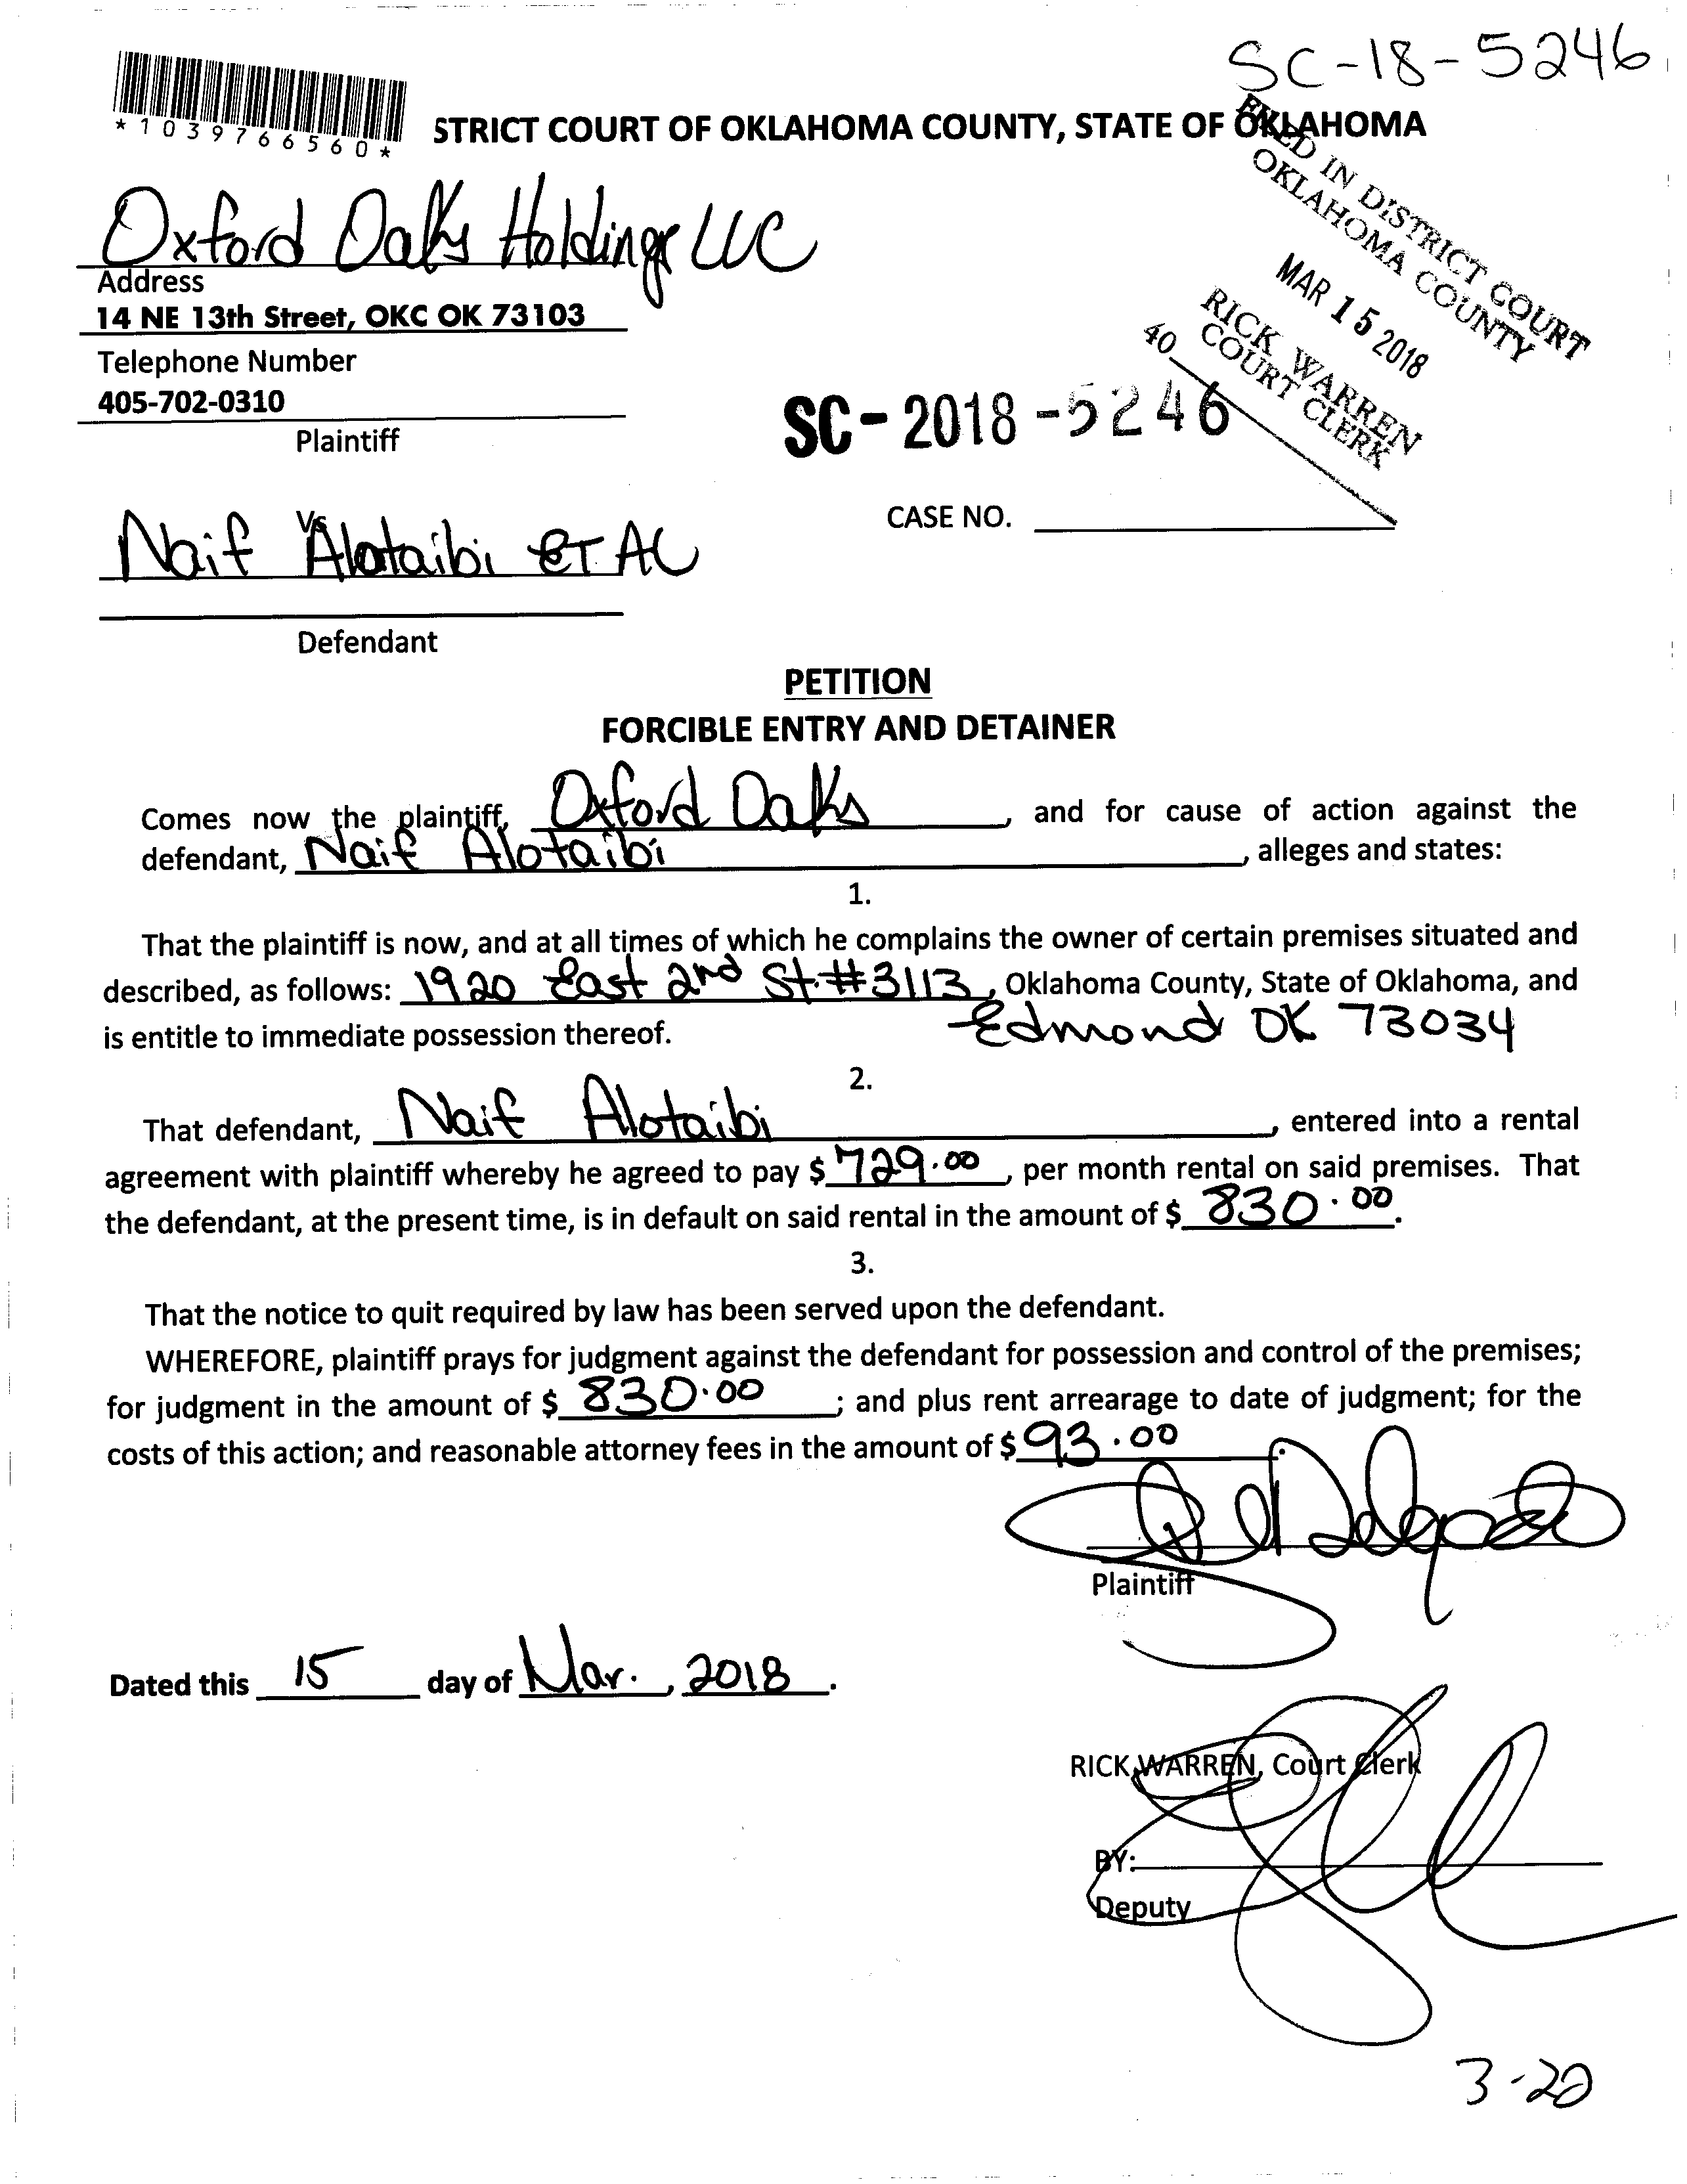 SC-18-5246
*1039766560*
STRICT COURT OF OKLAHOMA COUNTY, STATE OF OKLAHOMA
FILED IN DISTRICT COURT
OKLAHOMA COUNTY
MAR 15 2018
RICK WARREN
COURT CLERK
40
Oxford Oaks Holdings LLC
Address
14 NE 13th Street, OKC OK 73103
Telephone Number
405-702-0310
Plaintiff
SC-2018-5246
Vs
CASE NO.
Naif Alotaibi ET AL
Defendant
PETITION
FORCIBLE ENTRY AND DETAINER
Comes now the plaintiff, Oxford Oaks, and for cause of action against the
defendant, Naif Alotaibi, alleges and states:
1.
That the plaintiff is now, and at all times of which he complains the owner of certain premises situated and
described, as follows: 1920 East 2nd St. #3113, Oklahoma County, State of Oklahoma, and
is entitle to immediate possession thereof. Edmond OK 73034
2.
That defendant, Naif Alotaibi, entered into a rental
agreement with plaintiff whereby he agreed to pay $ 729.00, per month rental on said premises. That
the defendant, at the present time, is in default on said rental in the amount of $ 830.00.
3.
That the notice to quit required by law has been served upon the defendant.
WHEREFORE, plaintiff prays for judgment against the defendant for possession and control of the premises;
for judgment in the amount of $ 830.00; and plus rent arrearage to date of judgment; for the
costs of this action; and reasonable attorney fees in the amount of $ 93.00.
Plaintiff
Dated this 15 day of Mar., 2018.
RICK WARREN, Court Clerk
BY:
Deputy
3-20